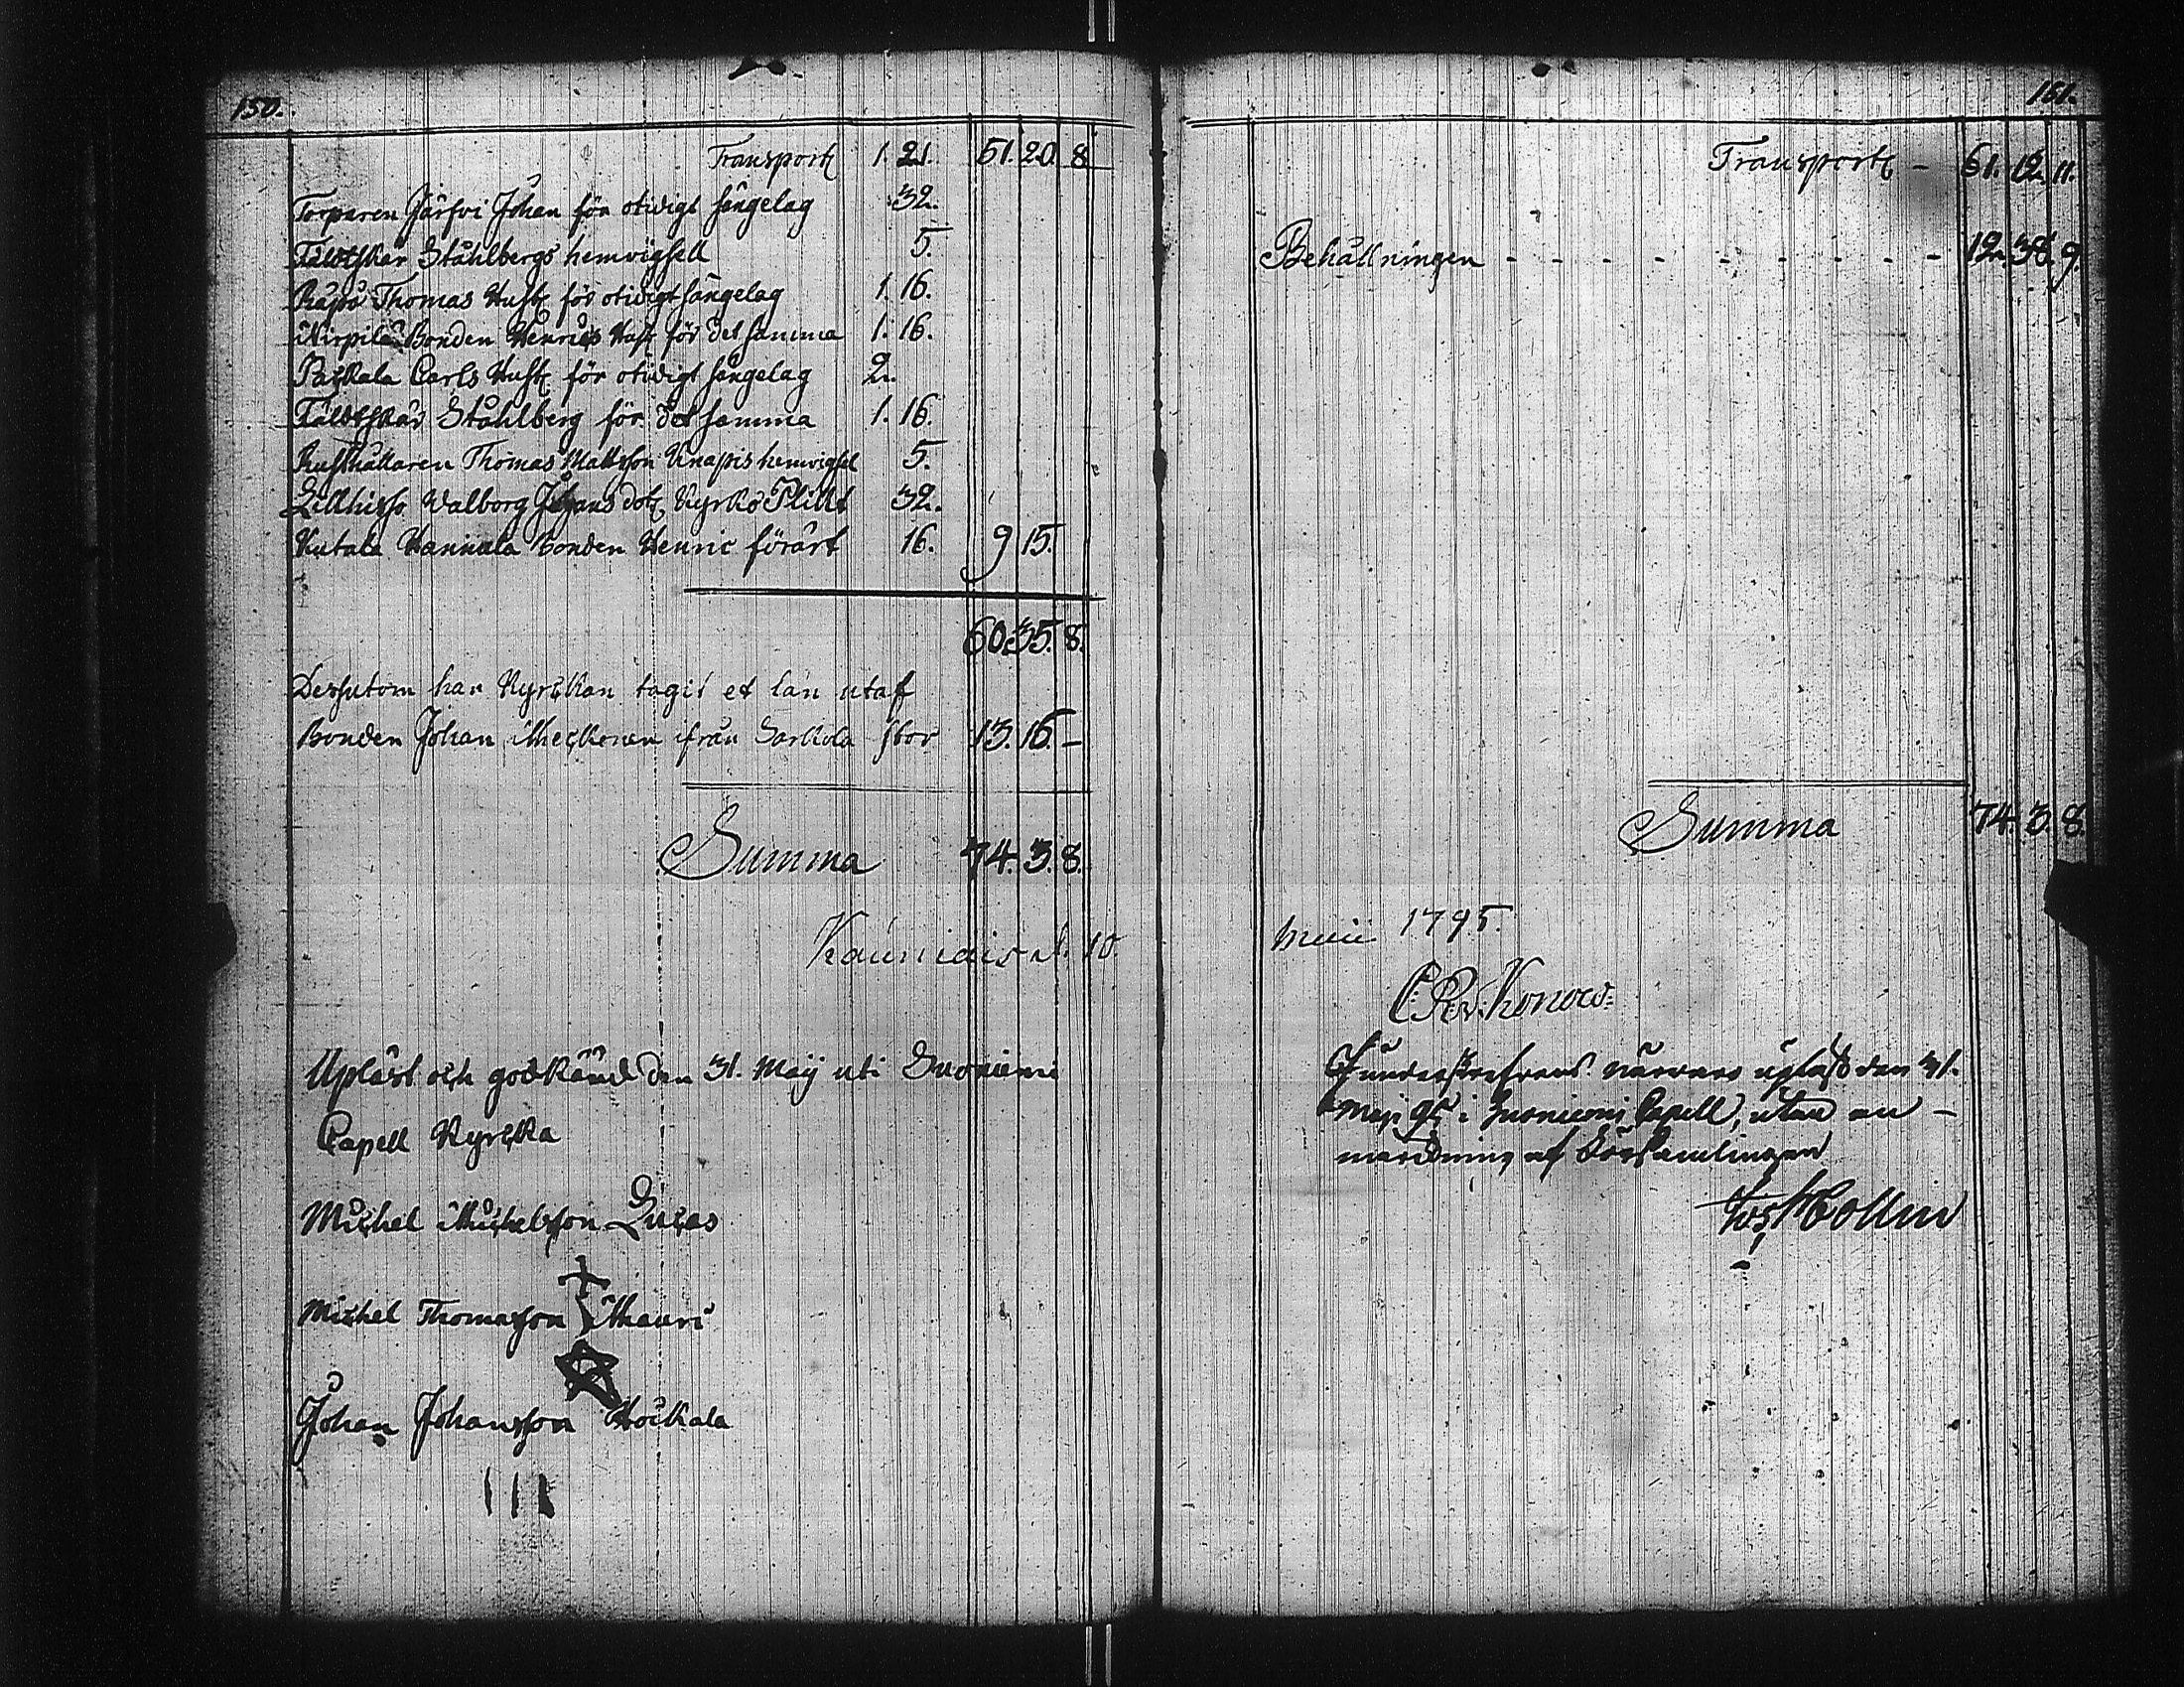 150.
Transport 1. 21. 51. 20. 8
Torparen Järfvi Johan för otidigt sängelag 32.
Fältskär Ståhlbergs hemvigsell 5.
Thomas Hust för otidigt sängelag 1. 16.
Bonden Henrics Hust för det samma 1. 16.
Paskala Carls Hust för otidigt sängelag 2.
Fältskär Ståhlberg för det samma 1. 16.
Rusthållaren Thomas Mattsson Knapis hemvigsel 5.
Walborg Johans dotr Kyrko Plikt 32.
Kutala Hannula Bonden Henric förärt 16. 9 15.
60. 35. 8.
Dessutom har Kyrckan tagit et lån utaf
Bonden Johan från Sarkola stor 13. 16. –
Summa 74. 3. 8.
Kauniais d. 10.
Upläst och godkänd den 31. Maij uti Suoniemi
Capell Kyrcka
Michel Michelsson Lucas
Michel Thomasson Mauri
Johan Johansson Hoickala
151.
Transport – 61. 12. 11.
Behållningen - - - - - - - - - 12. 38. 9.
Summa 74. 3. 8.
1795.
Konow
upläst den 31.
Maji 95 i Suoniemi Capell, utan an –
märckning af Församlingen
Collin